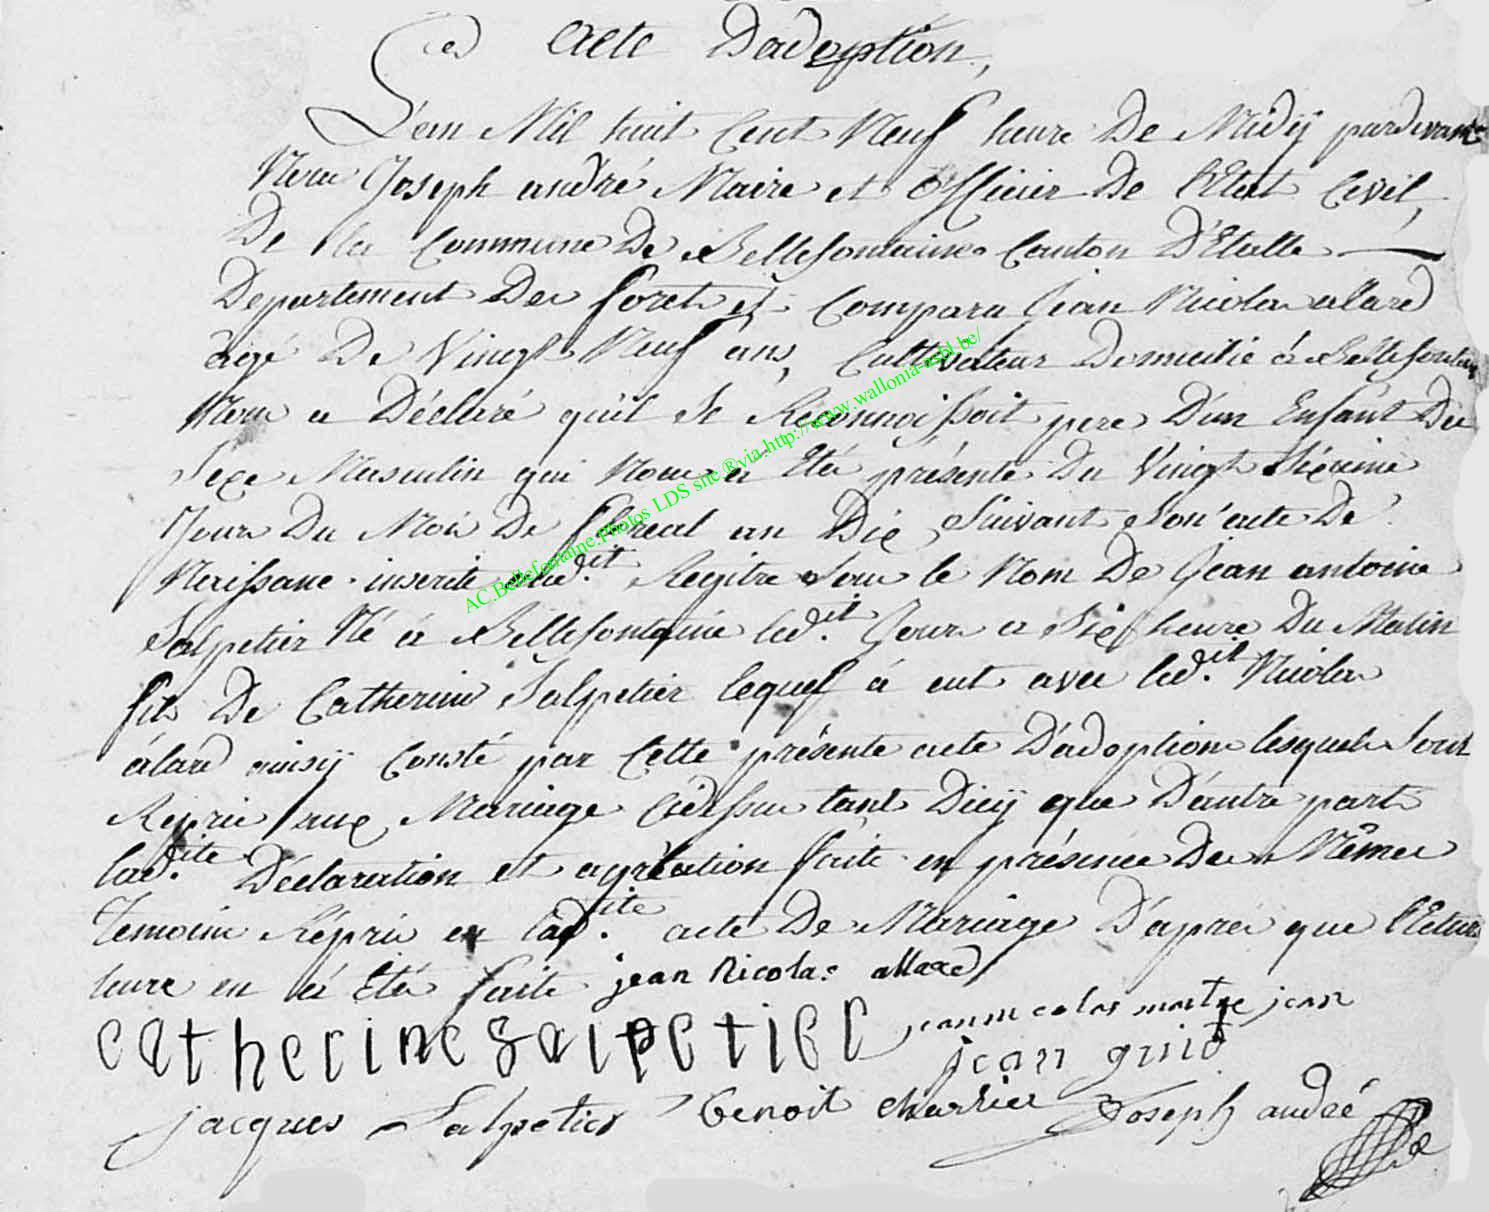 acte Dadoption,
L'an Mil huit Cent Neuf heure De Midÿ pardevant
Nous Joseph andré Maire et Officier De l'Etat Civil,
De la Commune De Bellefontaine Canton D'Etalle
Departement Des foret et Comparu Jean Nicolas allard
agé De Vingt Neuf ans, Cultivateur Domicilié á Bellefontaine
Nous a Déclaré qu'il Se Reconnoissoit pere D'un Enfant Du
Sexe Masculin qui Nous a Eté présenté Du Vingt Sixieme
Jour Du Mois De floreal an Dix Suivant Son acte De
Naissance inscrite Registre Sous le Nom De Jean antoine
Salpetier Né á Bellefontaine led.it Jour a Six heure Du Matin
fils De Catherine Salpetier lequel á eut avec led.it Nicolas
álard ainsÿ Consté par Cette présente acte D'adoption lesquels Sont
Repris aux Mariage Cidessus tant Dicÿ que D'autre part
lad.ite Déclaration et agréation faite en présence Des Mêmes
Temoins Répris en lad.ite acte De Mariage D'aprés que lEctu
leure en á Eté faite jean Nicolas allard
catherine salpetier jean nicolas maitre jean
jean guiot
jacques Salpetier Benoit charlier Joseph andré
AC.Bellefontaine.Photos LDS site ®via:http://www.wallonia-asbl.be/